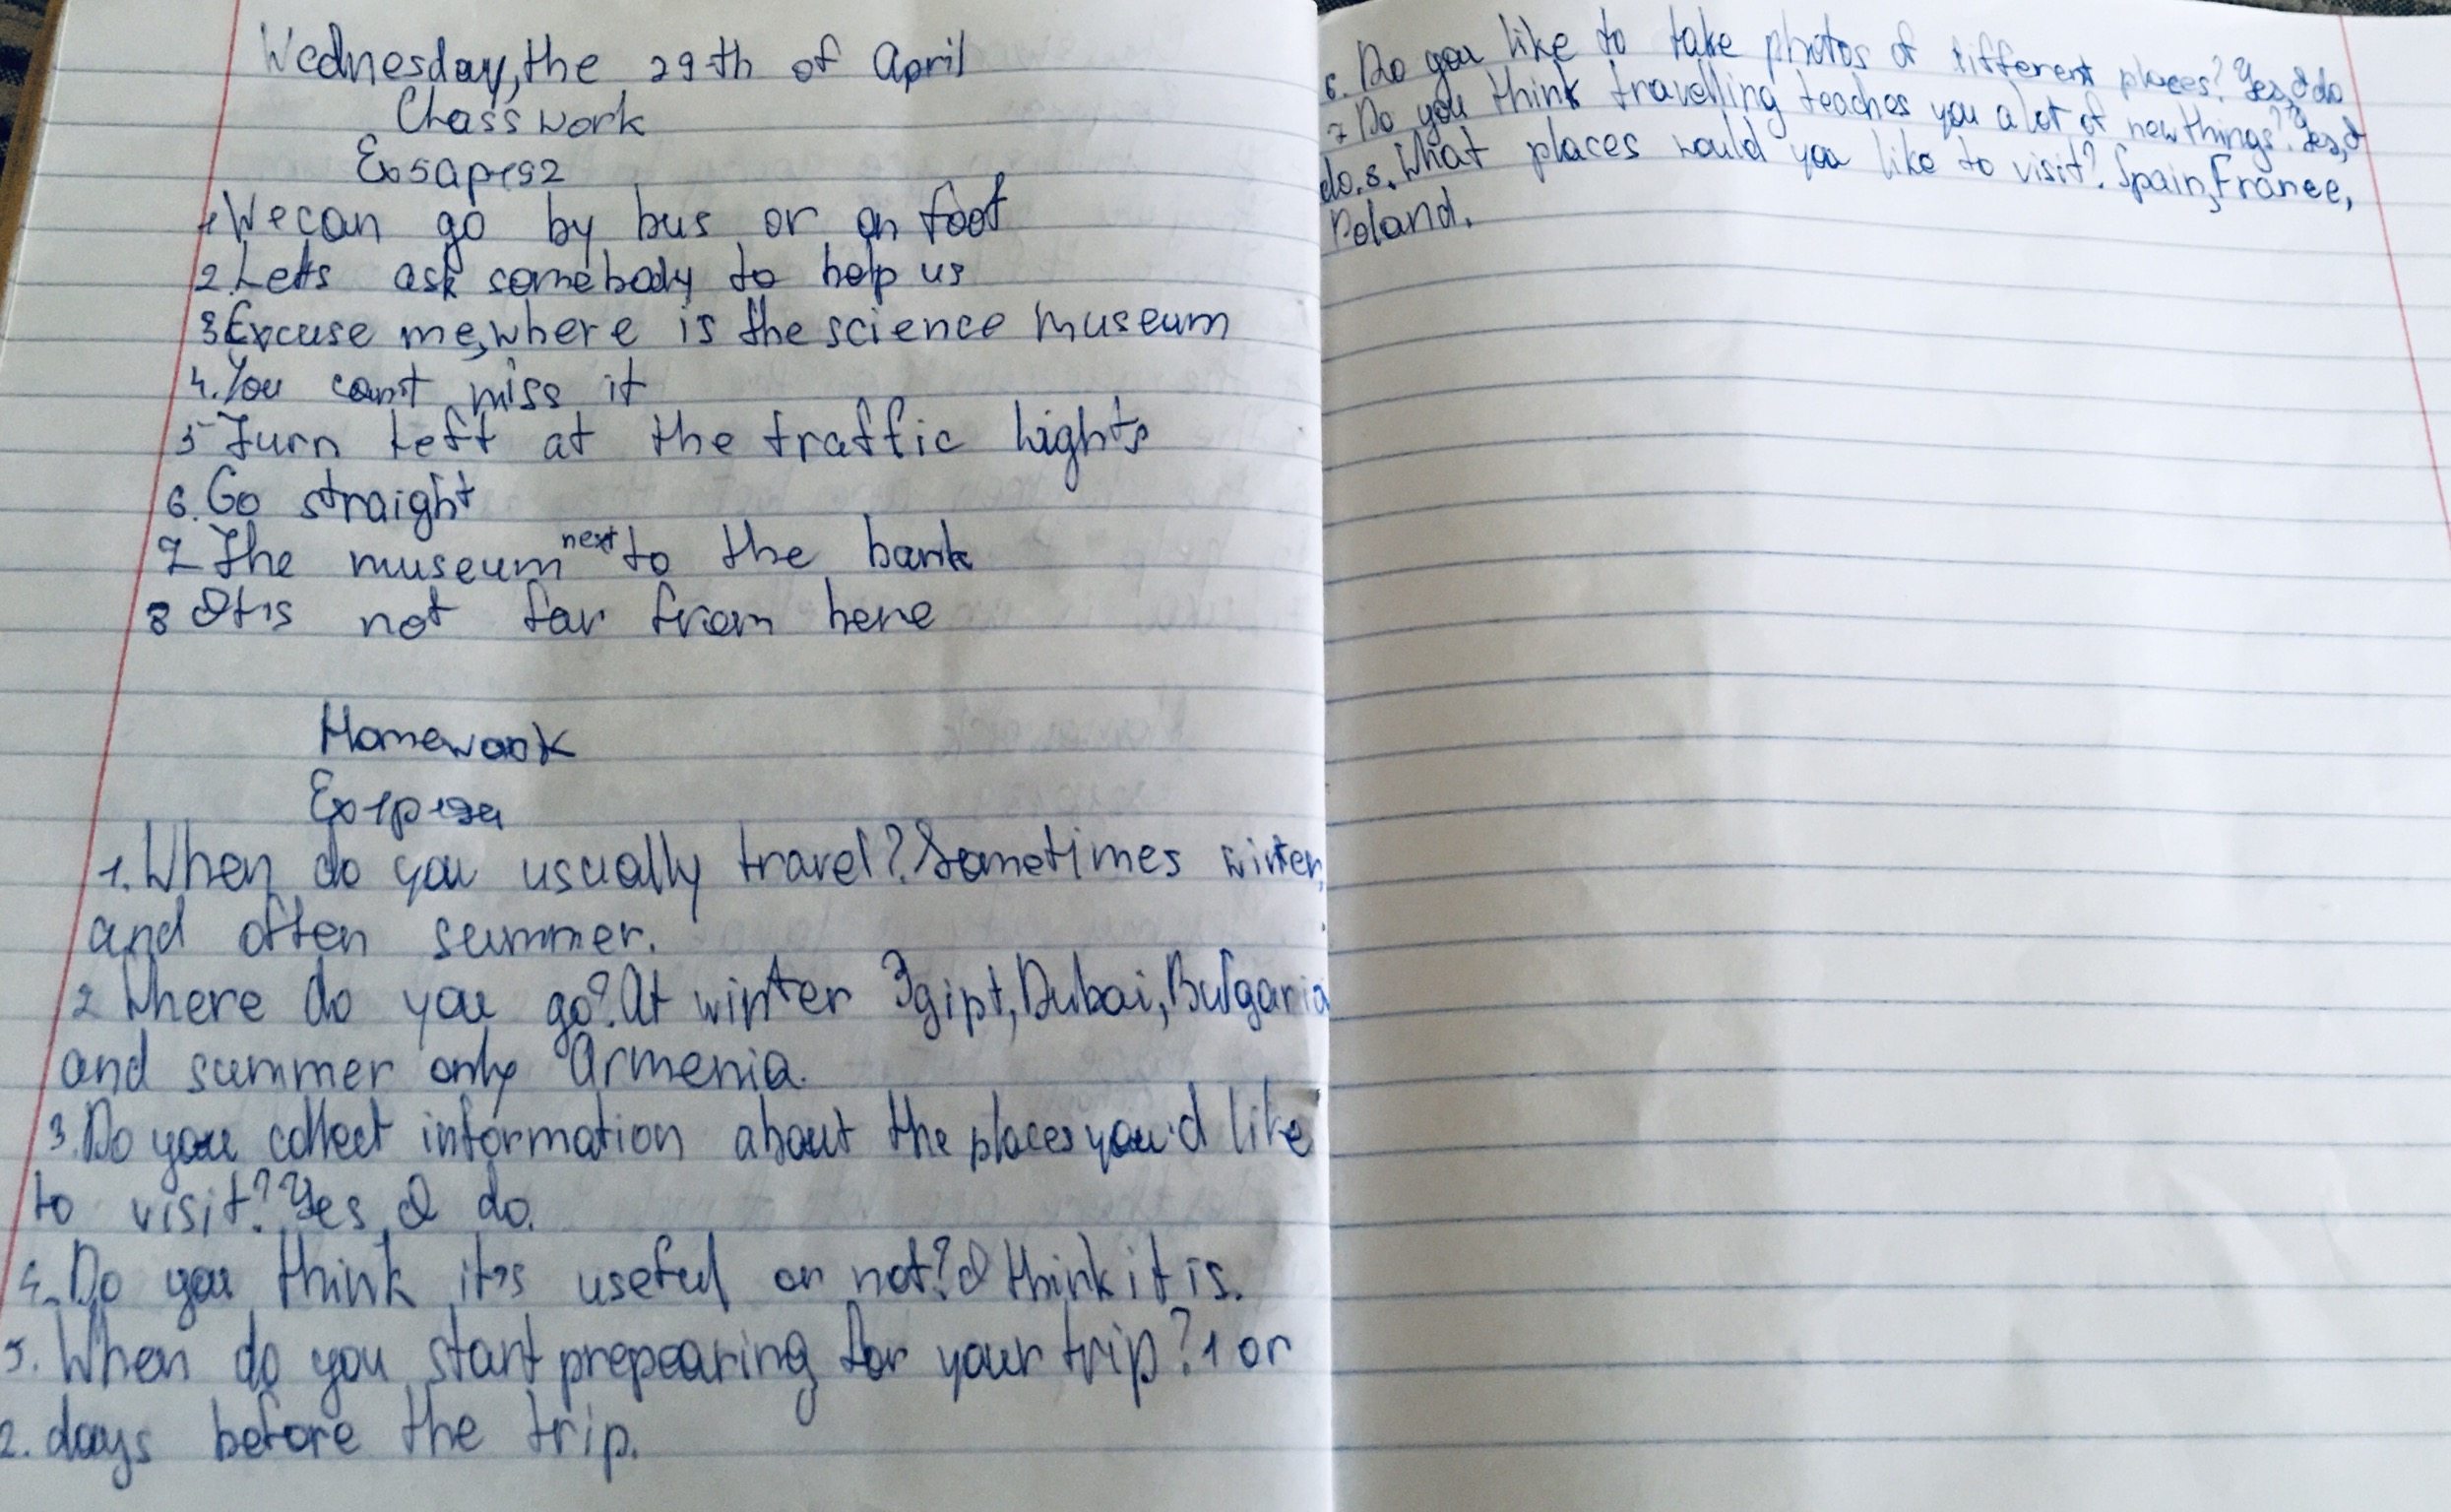 Wednesday, the 29th of April
Class work
Ex 5a p 192
1 We can go by bus or on foot
2. Let's ask somebody to help us
3 Excuse me, where is the science museum
4. You can't miss it
5 Turn left at the traffic lights
6. Go straight
7 The museum next to the bank
8 It is not far from here
Homework
Ex 1 p
1. When do you usually travel? Sometimes winter,
and often summer.
2 Where do you go? At winter Эgipt, Dubai, Bulgaria
and summer only Armenia.
3. Do you collect information about the places you'd like
to visit? Yes I do.
4. Do you think it's useful or not? I think it is.
5. When do you start prepearing for your trip? 1 or
2. days before the trip.
6. Do you like to take photos of different places? Yes, I do
7 Do you think travelling teaches you a lot of new things? Yes, I
do. 8. What places would you like to visit? Spain, France,
Poland.